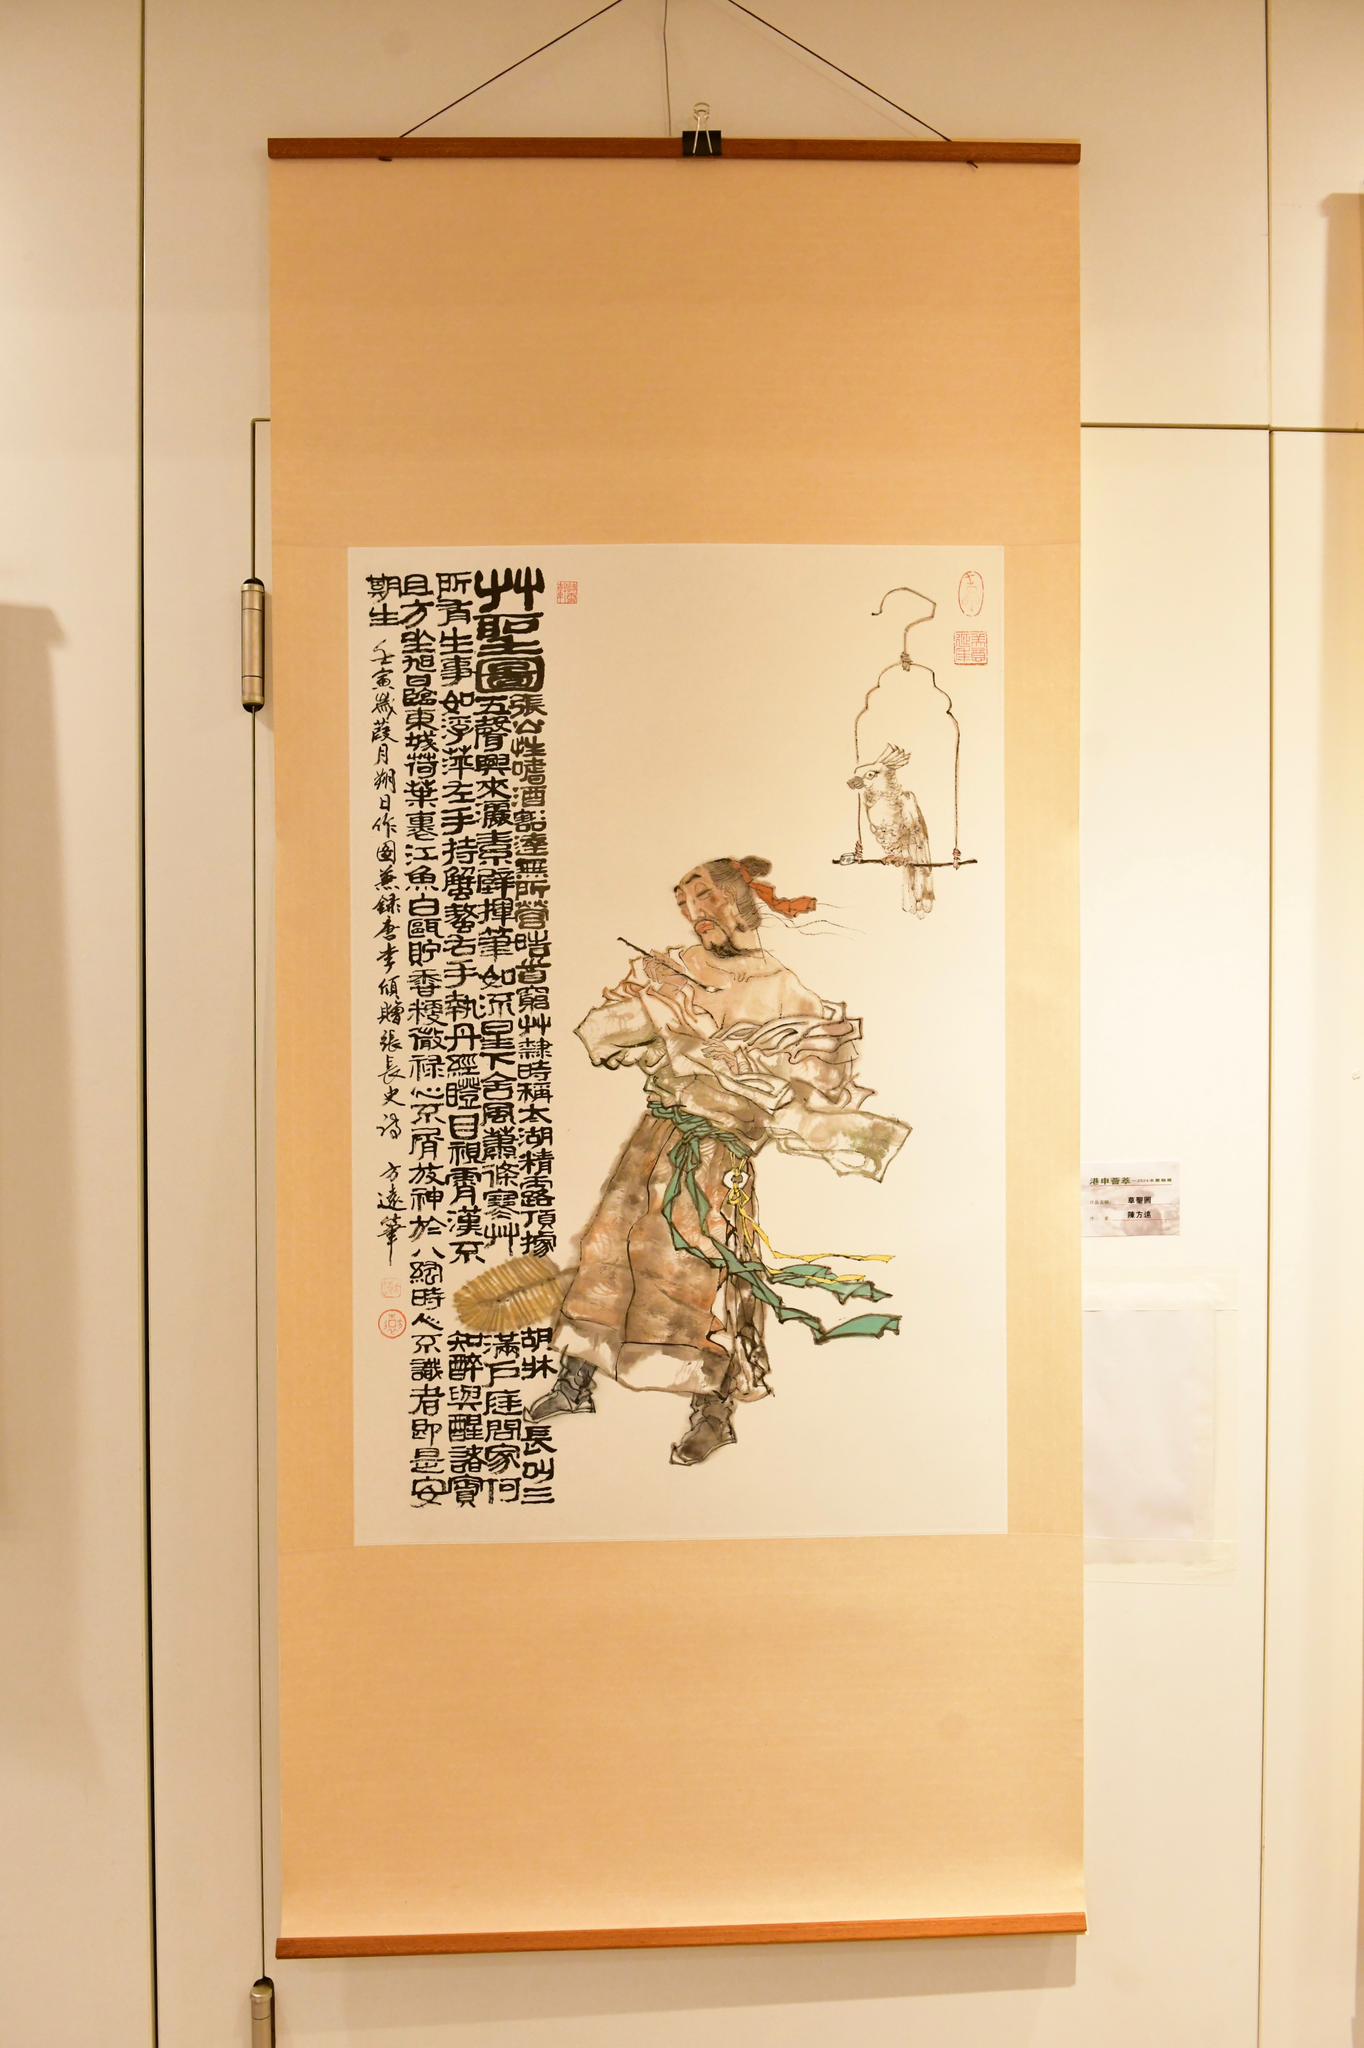 艸聖圖
張公性嗜酒豁達無所營皓首窮艸隸時稱太湖精露頂據胡牀長叫三
五聲興來灑素壁揮筆如流星下舍風蕭條寒艸滿戶庭問家何
所有生事如浮萍左手持蟹螯右手執丹經瞪目視霄漢不知醉與醒諸賓
且方坐旭日臨東城荷葉裹江魚白甌貯香粳微祿心不屑放神於八紘時人不識者即是安
期生 壬寅歲葭月朔日作圖兼錄唐李頎贈張長史詩 方遠筆
港申薈萃
草聖圖
陳方遠